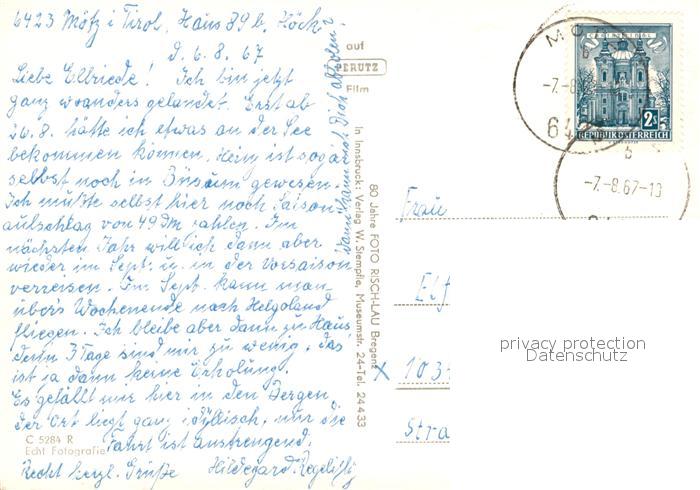 6423 Mötz i Tirol, Haus 89 b. Höckh
d. 6.8.67.
Liebe Elfriede! Ich bin jetzt
ganz woanders gelandet. Erst ab
26.8. hätte ich etwas an der See
bekommen können. Heinz ist sogar
selbst noch in Büsum gewesen.
Ich müßte selbst hier noch Saison-
aufschlag von 49 DM zahlen. Im
nächsten Jahr will ich dann aber
wieder im Sept. u. in der Vorsaison
verreisen. Im Sept. kann man
übers Wochenende nach Helgoland
fliegen. Ich bleibe aber dann zu Haus,
denn 3 Tage sind mir zu wenig, das
ist ja dann keine Erholung.
Es gefällt mir hier in den Bergen,
der Ort liegt ganz idyllisch, nur die
Fahrt ist anstrengend.
Recht herzl. Grüße Hildegard
Wann kann ich Dich abholen?
C 5284 R
Echt Fotografie
auf
PERUTZ
Film
80 Jahre FOTO RISCH-LAU Bregenz
In Innsbruck: Verlag W. Stempfle, Museumstr. 24-Tel. 24433
REPUBLIK ÖSTERREICH
2s
-7.-8
b
-7.-8.67-19
Frau
Elf
x 103
Stra
privacy protection
Datenschutz